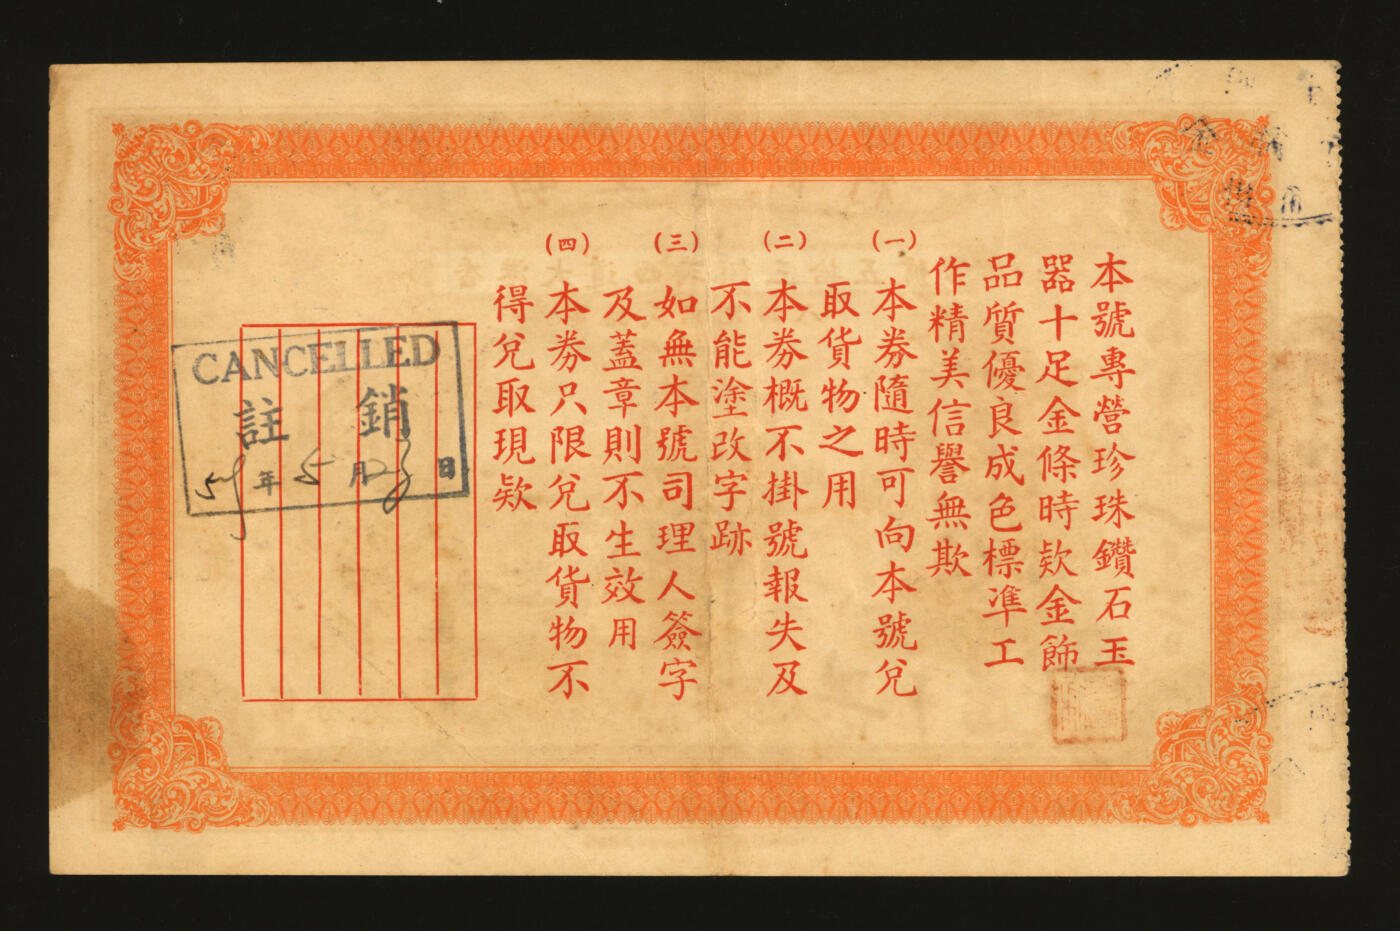 本號專營珍珠鑽石玉
器十足金條時欵金飾
品質優良成色標準工
作精美信譽無欺
(一)
本券隨時可向本號兌
取貨物之用
(二)
本券概不掛號報失及
不能塗改字跡
(三)
如無本號司理人簽字
及蓋章則不生效用
(四)
本券只限兌取貨物不
得兌取現欵
CANCELLED
註 銷
59年5月23日